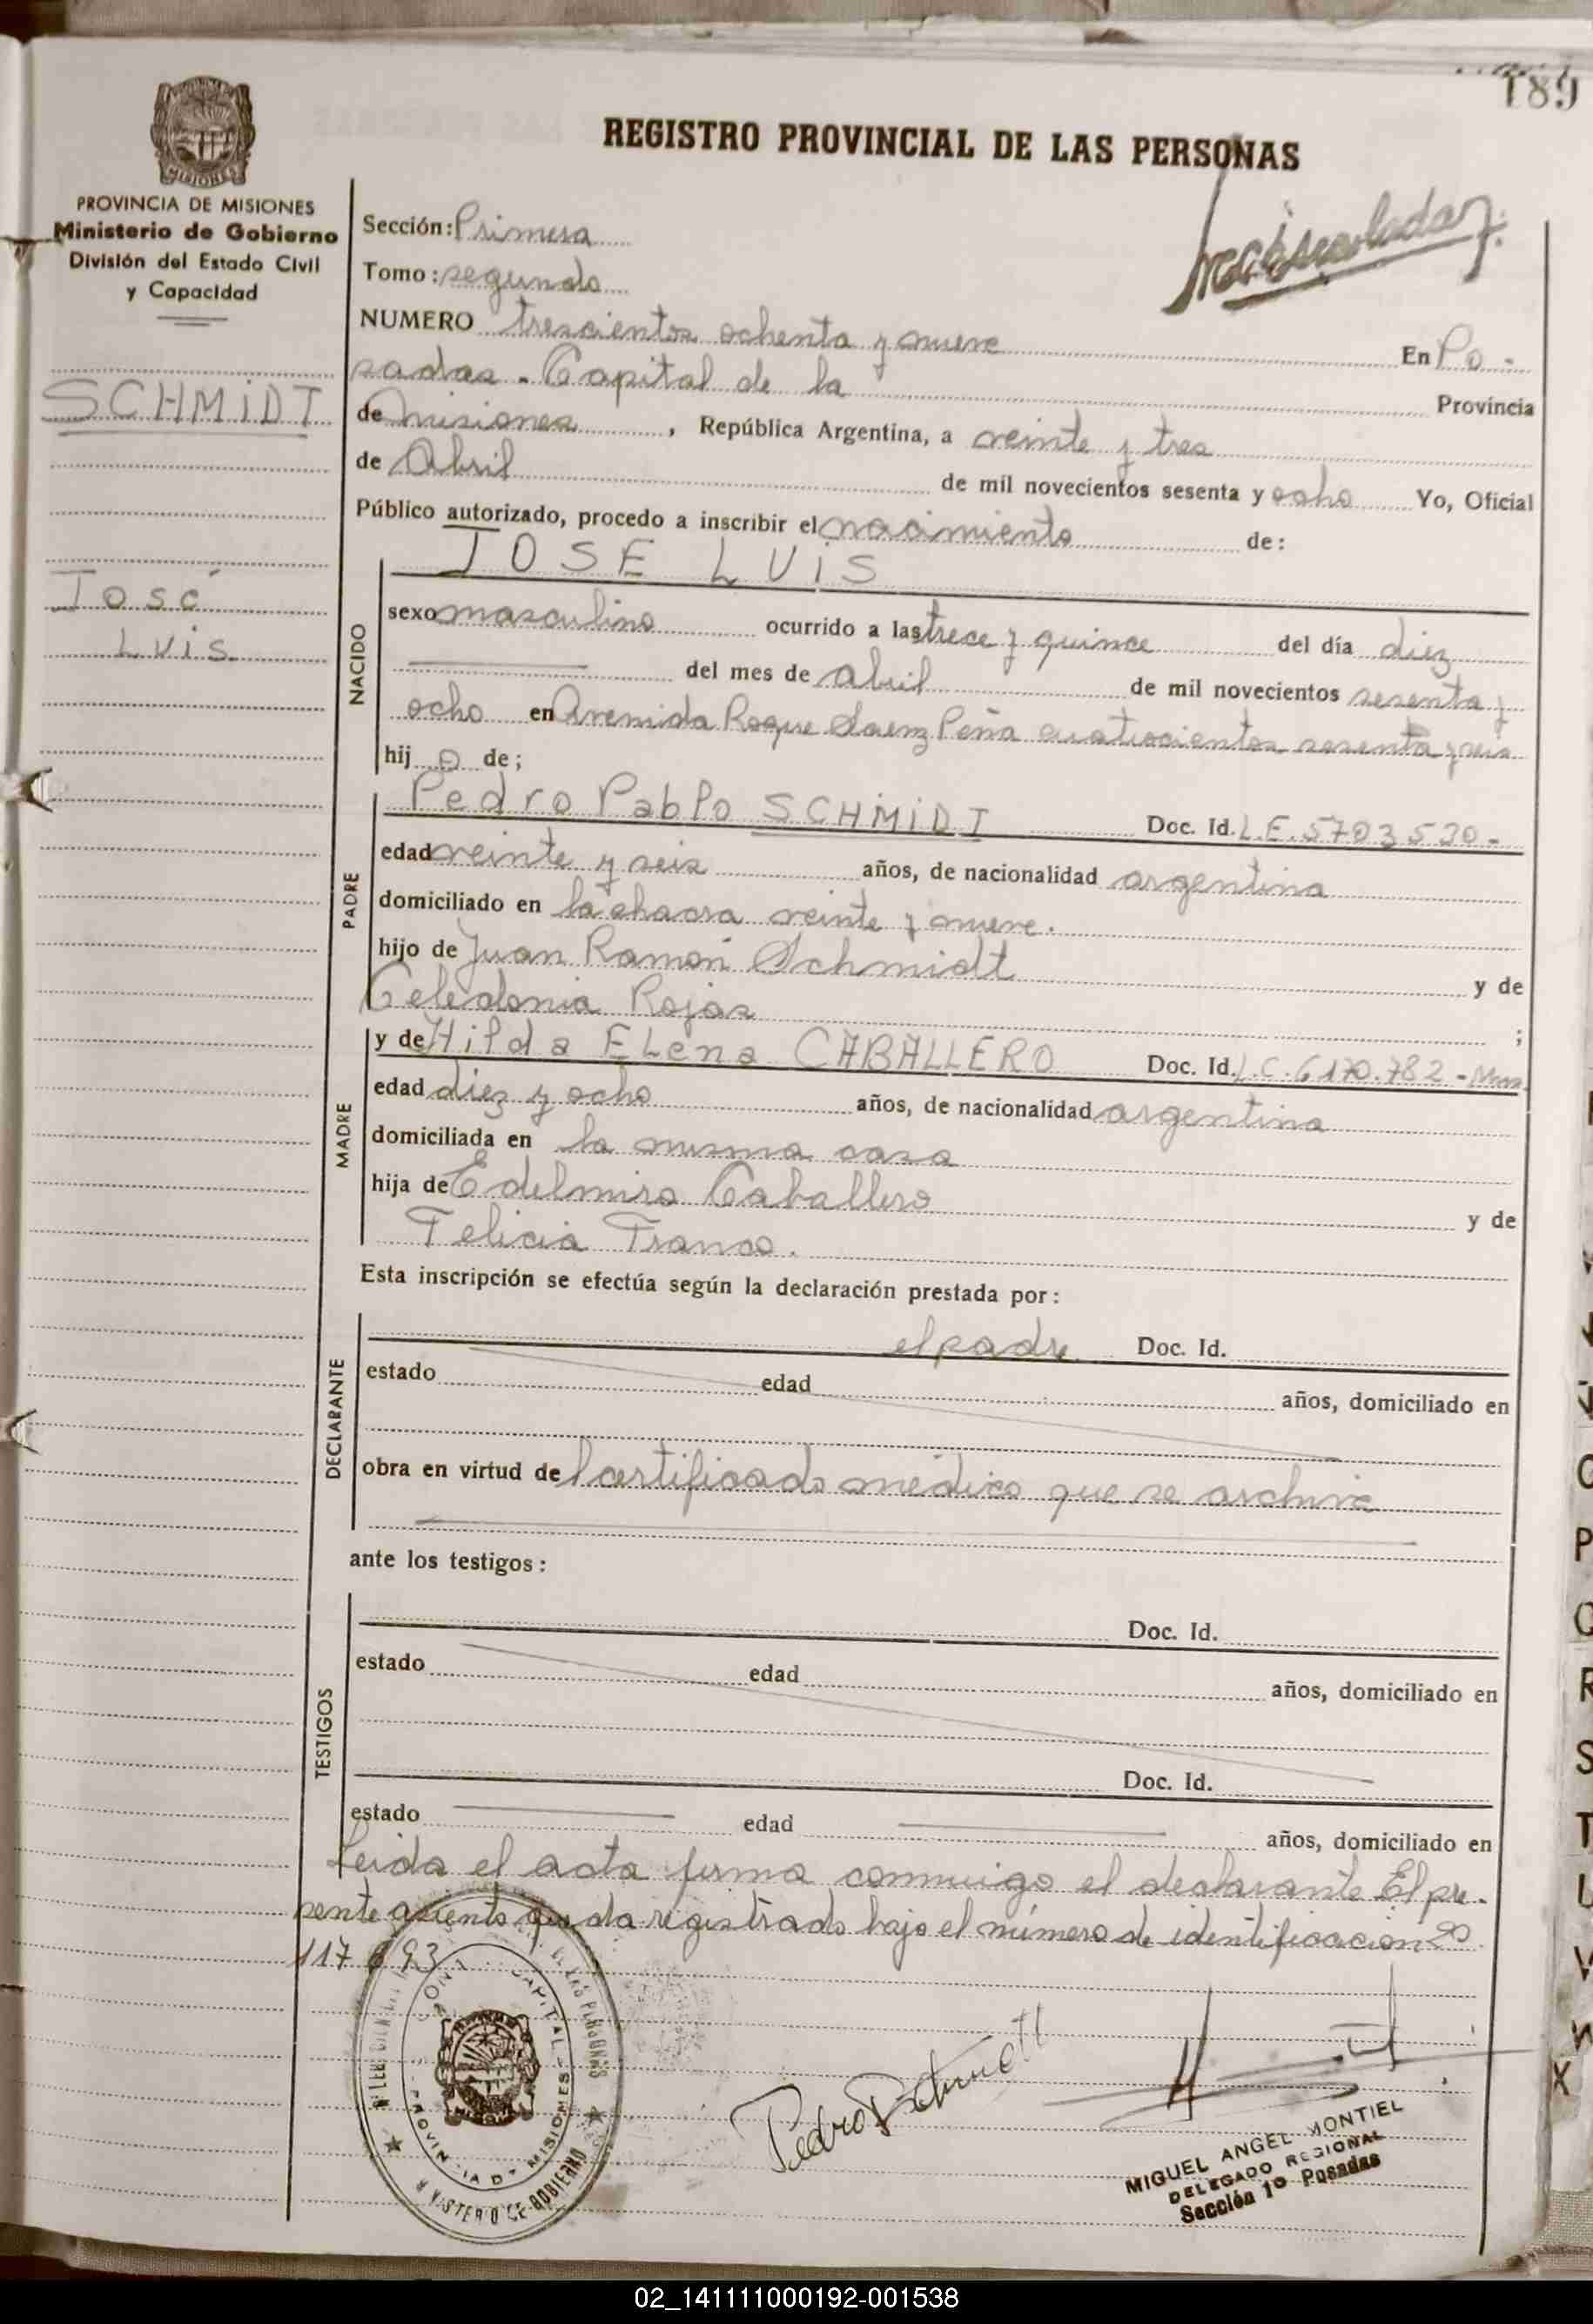 189
REGISTRO PROVINCIAL DE LAS PERSONAS
MISIONES
PROVINCIA DE MISIONES
Ministerio de Gobierno
División del Estado Civil
y Capacidad
SCHMIDT
José
Luis
Sección: Primera
Tomo: segundo
NUMERO trescientos ochenta y nueve En Po-
sadas - Capital de la Provincia
de Misiones, República Argentina, a veinte y tres
de Abril de mil novecientos sesenta y ocho Yo, Oficial
Público autorizado, procedo a inscribir el nacimiento de:
JOSE LUIS
NACIDO
sexo masculino ocurrido a las trece y quince del día diez
del mes de abril de mil novecientos sesenta y
ocho en Avenida Roque Saenz Peña cuatrocientos sesenta y seis
hijo de;
PADRE
Pedro Pablo SCHMIDT Doc. Id. L.E. 5703530-
edad veinte y seis años, de nacionalidad argentina
domiciliado en la chacra veinte y nueve.
hijo de Juan Ramón Schmidt y de
Celedonia Rojas ;
MADRE
y de Hilda Elena CABALLERO Doc. Id. L.C. 6170.782 -
edad diez y ocho años, de nacionalidad argentina
domiciliada en la misma casa
hija de Edelmiro Caballero y de
Felicia Franco.
Esta inscripción se efectúa según la declaración prestada por:
DECLARANTE
el padre Doc. Id.
estado edad años, domiciliado en
obra en virtud del certificado médico que se archiva
ante los testigos:
TESTIGOS
Doc. Id.
estado edad años, domiciliado en
Doc. Id.
estado edad años, domiciliado en
Leida el acta firma conmigo el declarante El pre-
sente asiento queda registrado bajo el número de identificación 20
117693
CAPITAL - PROVINCIA DE MISIONES
MINISTERIO DE GOBIERNO
MIGUEL ANGEL MONTIEL
DELEGADO REGIONAL
Sección 1º Posadas
O
P
Q
R
S
T
U
V
W
X
02_141111000192-001538